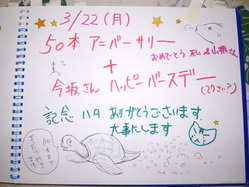 3/22(月)
50本アニバーサリー
おめでとう
+
今坂さん ハッピーバースデー
記念ハタ ありがとうございます
大事にします